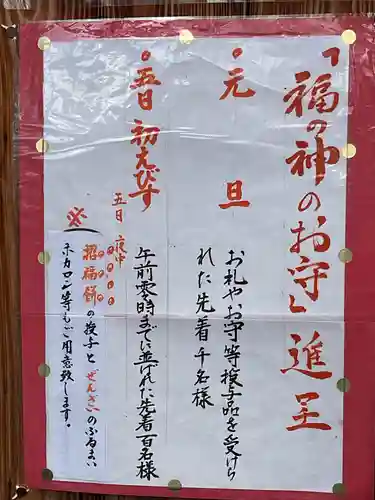 「福の神のお守」進呈
・元旦
お札やお守等授与品を受けら
れた先着千名様
・五日 初えびす
午前零時までに並ばれた先着百名様
五日夜中
※招福餅の授与とぜんざいのふるまい
ホカロン等もご用意致します。